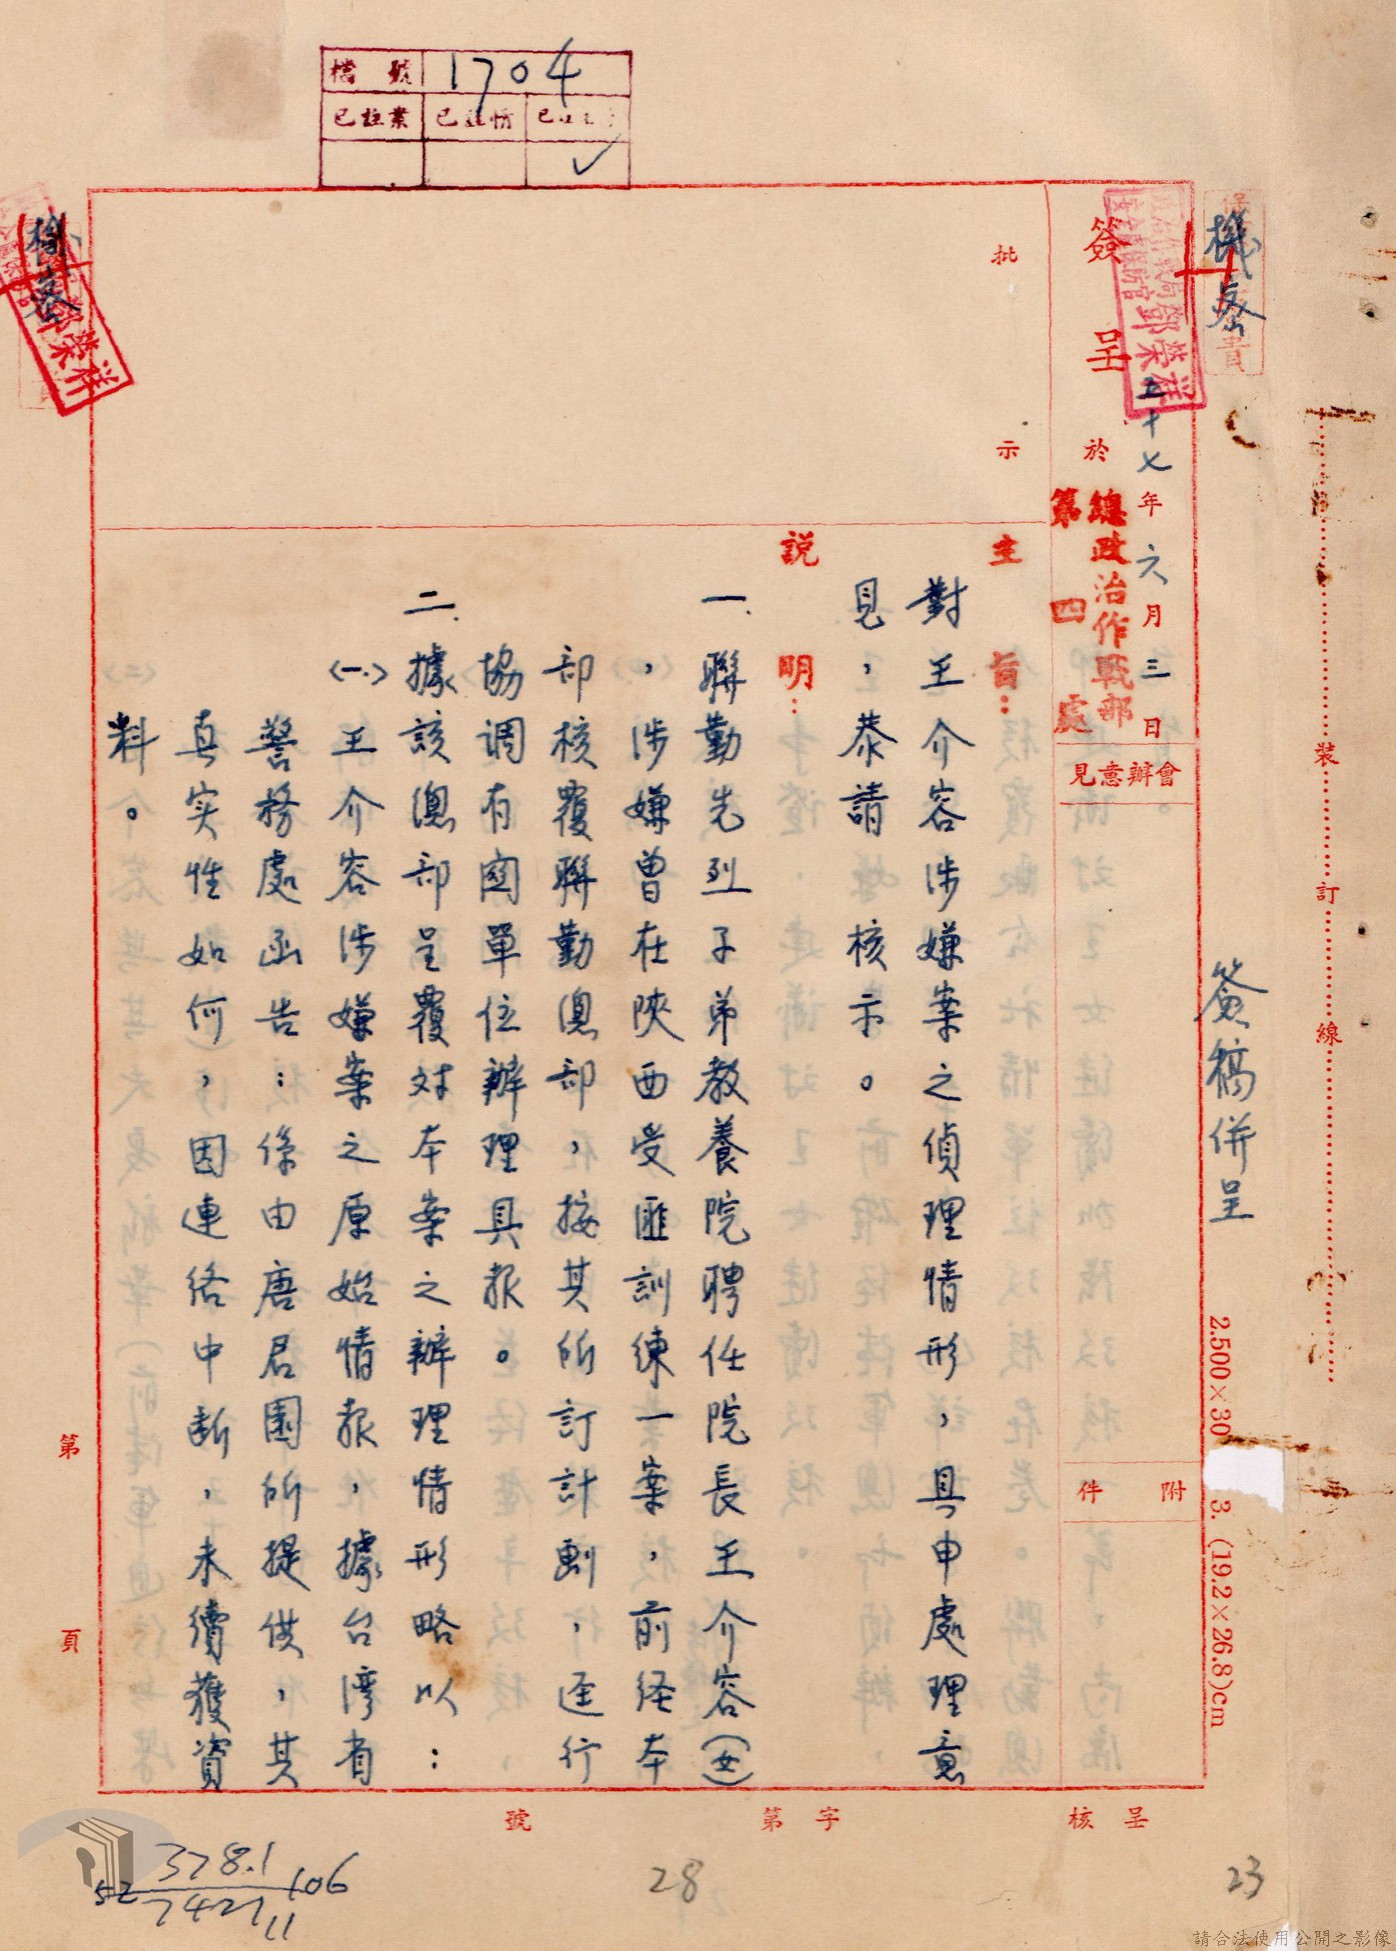 檔號 1704
已註業 已註情
機密
簽稿併呈
2.500×30
3. (19.2×26.8)cm
裝訂線
五十七年六月三日
簽呈 於
總政治作戰部
第四處
會辦意見
附件
批示
主旨：
對王介容涉嫌案之偵理情形，具申處理意
見，恭請 核示。
說明：
一、聯勤先烈子弟教養院聘任院長王介容(女)
，涉嫌曾在陝西受匪訓練一案，前經本
部核覆聯勤總部，按其所訂計劃，逕行
協調有關單位辦理具報。
二、據該總部呈覆对本案之辦理情形略以：
〈一〉王介容涉嫌案之原始情報，據台灣省
警務處函告：係由唐君園所提供，其
真实性如何，因連絡中断，未續獲資
料。
機密
鄧榮祥
政治作戰局
保防官鄧榮祥
第 頁
呈核
字第 號
378.1
52 106
7421
11
28
23
請合法使用公開之影像